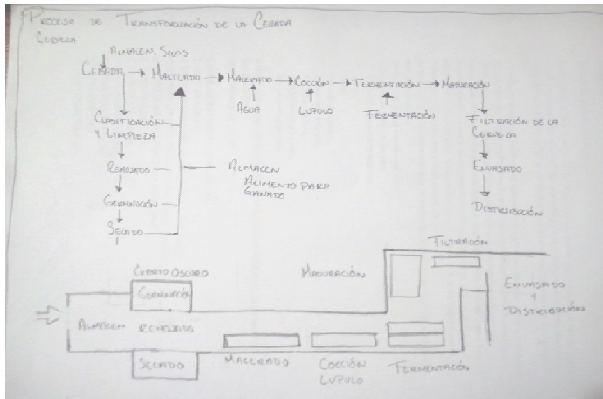 PROCESO DE TRANSFORMACIÓN DE LA CEBADA
CERVEZA
ALMACEN, SILOS
CEBADA → MALTEADO → MACERADO → COCCIÓN → FERMENTACIÓN → MADURACIÓN
AGUA LUPULO FERMENTACIÓN
CLASIFICACIÓN
Y LIMPIEZA
REMOJADO
GERMINACIÓN
SECADO
ALMACEN
ALIMENTO PARA
GANADO
FILTRACIÓN DE LA
CERVEZA
ENVASADO
DISTRIBUCIÓN
CUARTO OSCURO
GERMINACIÓN
ALMACEN REMOJADO
SECADO
MACERADO
COCCIÓN
LUPULO
FERMENTACIÓN
MADURACIÓN
FILTRACIÓN
ENVASADO
Y
DISTRIBUCIÓN